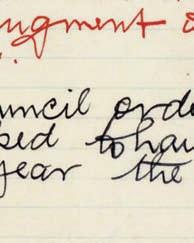 ungment
..
uncil orde
ked to hav
year the